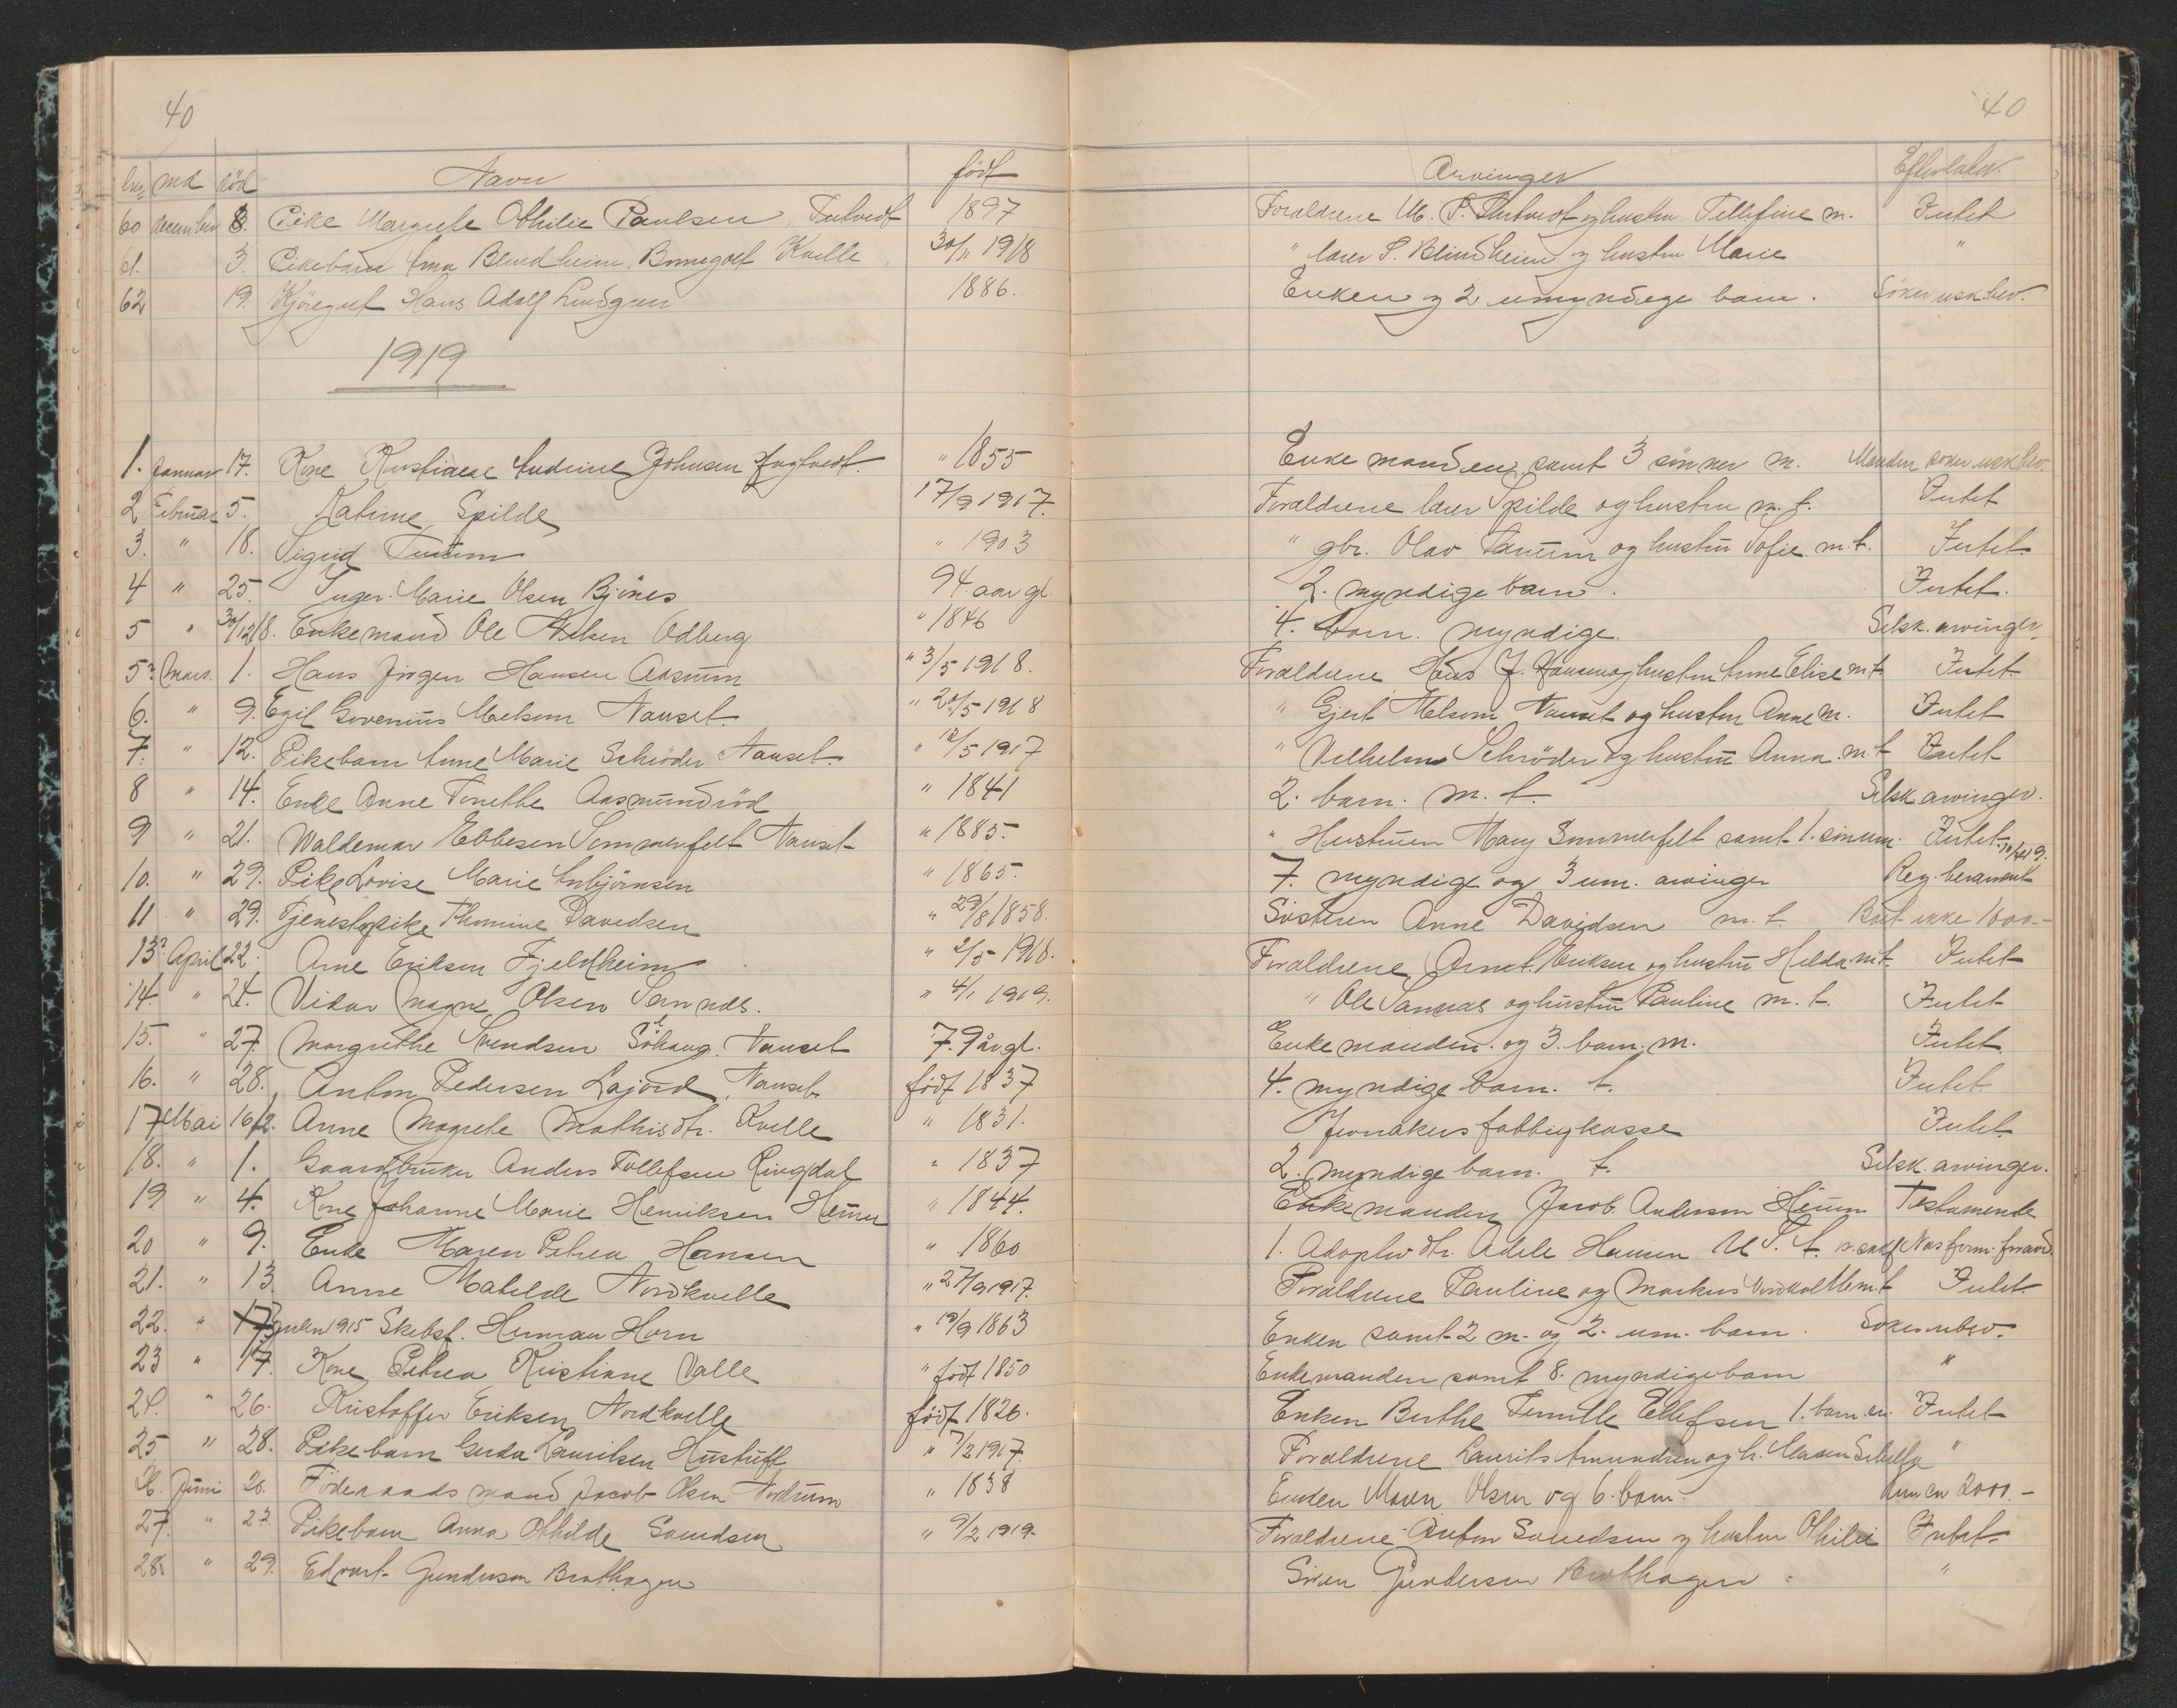 40
40
lnr md död Navn födt Arvinger Efterladen.
60 december 8. Pike Margrete Othilie Paulsen, Tutvedt 1897 Foraldrene M. P. Thutvedt og hustru Tellefine m. Intet
61. 3. Pikebarn Blindheim. Bonnegolf Kvelle 30/11 1918 " lærer P. Blindheim og hustru Marie "
62 19. Kjöregut Hans Adolf Lundgren 1886. Enken og 2 umyndige barn. Söker usk.bev.
1919
1. Januar 17. Kone Kristiane Andrine Johnsen Fugtvedt. " 1855 Enkemanden samt 3 sönner m. Manden söker uskbev.
2 Februar 5. Katrine Spilde 17/9 1917. Foraldrene lærer Spilde og hustru m. t. Intet
3. " 18. Sigrid Tanum " 1903 " gbr. Olav Tanum og hustru Sofie m.t. Intet.
4 " 25. Inger Marie Olsen Bjönes 94 aar gl. 2. myndige barn. Intet.
5 " 30/12 18. Enkemand Ole Nilsen Odberg " 1846 4. barn. myndige. Selsk. arvinger.
5? Mars. 1. Hans Jörgen Hansen Aasrum " 3/5 1918. Foraldrene Hans J. Hansen og hustru Anne Elise m.t. Intet.
6. " 9. Egil Govenius Melsom Nanset. " 20/5 1918 " Gjert Melsom Nanset og hustru Anne m. Intet
7. " 12. Pikebarn Anne Marie Schröder Nanset. " 12/5 1917 " Vilhelm Schröder og hustru Anna. m.t Intet
8 " 14. Enke Anne Tonethe Aasmundröd " 1841 2. barn. m. t. Selsk arvinger.
9 " 21. Waldemar Ebbesen Sommerfelt Nanset " 1885. " Hustruen Mary Sommerfelt samt 1. sön um. Intet. 10/4 19.
10. " 29. Pike Lovise Marie Anbjörnsen " 1865. 7. myndige og 3 um. arvinger Reg. berammet
11 " 29. Tjenestepike Thomine Davidsen " 29/8 1858. Sösteren Anne Davidsen m. t. Boet ikke 1000.-
13? April 22. Arne Eriksen Fjeldheim " 2/5 1918. Foraldrene, Arnt. Eriksen og hustru Hilda m.t. Intet
14. " 24. Vidar Magne Olsen Sannæs. " 4/1 1919. " Ole Sannæs og hustru Pauline m. t. Intet
15. " 27. Margrethe Svendsen Söhaug. Nanset 79 år gl. Enkemanden. og 3. barn. m. Intet.
16. " 28. Anton Pedersen Lajord, Nanset födt 1837 4. myndige barn. t. Intet
17 Mai 16/2. Anne Magrete Mathisdtr. Kvelle " 1831. Jernakers fattigkasse Intet
18. " 1. Gaardbruker Anders Tollefsen Ringdal " 1837 2. myndige barn. t. Selsk. arvinger.
19 " 4. Kone Johanne Marie Henriksen Heum " 1844. Enkemanden Jacob Anderson Heum Testamente
20 " 9. Enke Maren Petrea Hansen " 1860 1. Adoptiv dtr. Adele Hansen
21. " 13. Anne Mabelde Nordkvelle " 27/9 1917. Foraldrene Pauline og Markus Nordkvelle m.t Intet
22. " 17 juli 1915 Skebsf. Herman Horn " 19/9 1863 Enken samt 2 m. og 2. um. barn. Söker ubev.
23 " 17. Kone Petrea Kristiane Valle " födt 1850 Enkemanden samt 8. myndige barn "
24. " 26. Kristoffer Eriksen Nordkvelle födt 1826. Enken Berthe Ellefsen 1. barn. Intet
25 " 28. Pikebarn Gerda Lauritsen Hustuft " 7/2 1917. Foraldrene Laurits Amundsen og h. Maren Sibella "
26. Juni 26. Föderaadsmand Jacob Olsen Nordrum " 1838 Enken Maren Olsen og 6. barn. kun en 2000.-
27. " 23. Pikebarn Anna Othilde Svendsen " 9/2 1919. Foraldrene Anton Svendsen og hustru Othilie Intet.
28. " 29. Edvart Gundersen Brathagen Gundersen Brathagen "